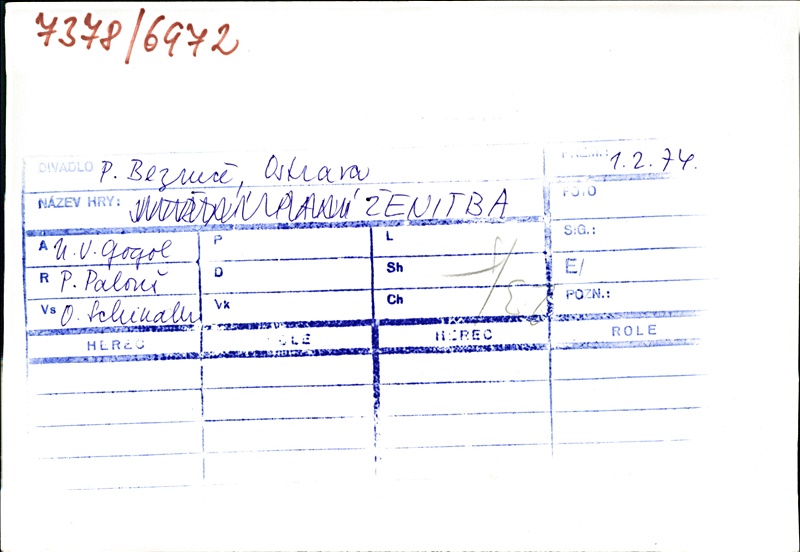 7378/6972
DIVADLO P. Bezruč, Ostrava PREM.: 1.2.74.
NÁZEV HRY: ŽENITBA FOTO
A N.V. Gogol P L SIG.:
R P. Palouš D Sh E/
Vs O. Schindler Vk Ch POZN.:
HEREC ROLE HEREC ROLE